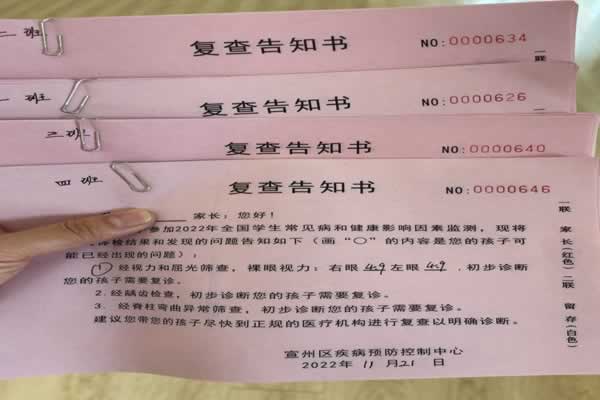 二班
复查告知书
NO:0000634
一联
一班
复查告知书
NO:0000626
一联
三班
复查告知书
NO:0000640
四班
复查告知书
NO:0000646
家长：您好！
参加2022年全国学生常见病和健康影响因素监测，现将
体检结果和发现的问题告知如下（画“○”的内容是您的孩子可
能已经出现的问题）：
1 经视力和屈光筛查，裸眼视力：右眼 4.9 左眼 4.9 .初步诊断
您的孩子需要复诊。
2. 经龋齿检查，初步诊断您的孩子需要复诊。
3. 经脊柱弯曲异常筛查，初步诊断您的孩子需要复诊。
建议您带您的孩子尽快到正规的医疗机构进行复查以明确诊断。
宣州区疾病预防控制中心
2022年 11 月 21 日
一联 家长(红色) 二联 留存(白色)